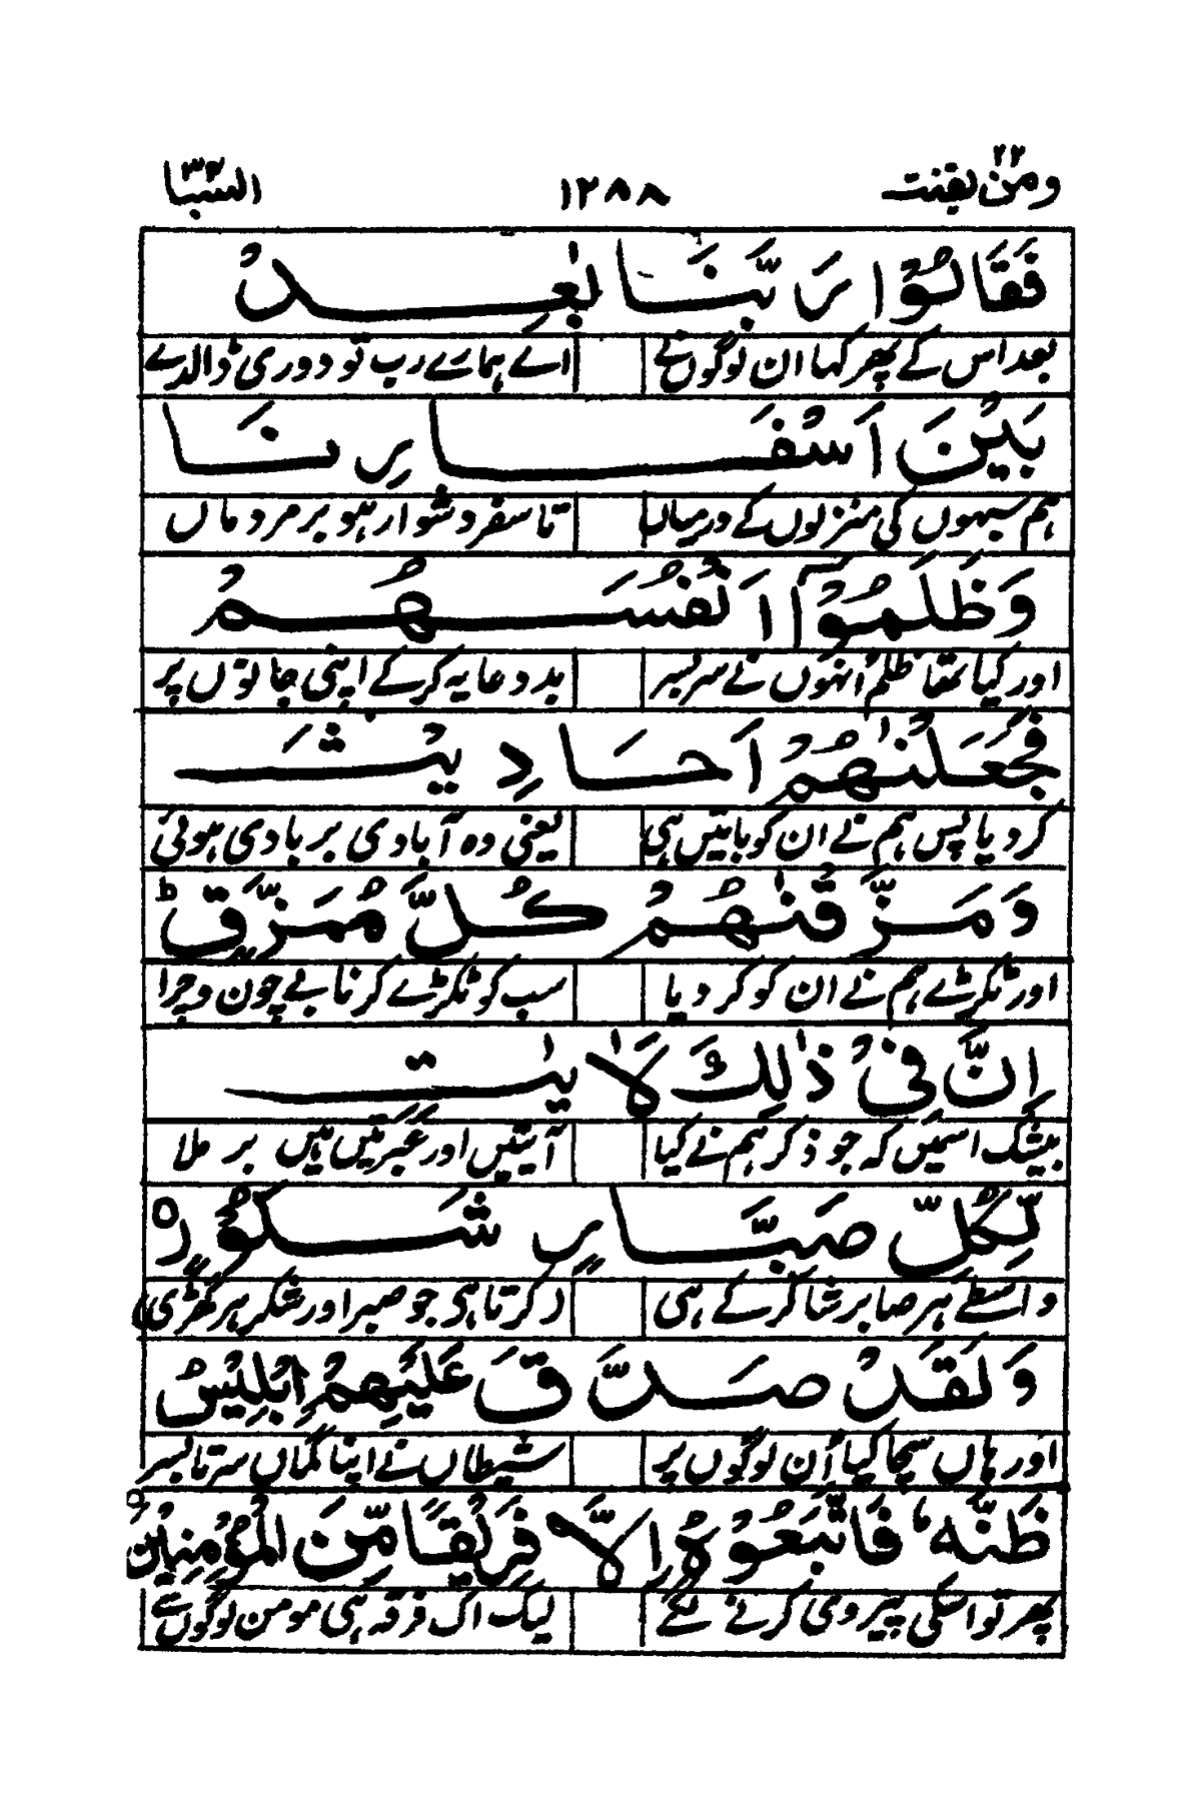 ومن یقنت ٢٢ ١٢٨٨ السبا ٣٤
فَقَالُوْا رَبَّنَا بٰعِدْ
بعد اس کے پھر کہا ان لوگوں نے اے ہمارے رب تو دوری ڈالدے
بَيْنَ اَسْفَارِنَا
ہم سبہوں کی منزلوں کے درمیاں تا سفر دشوار ہو ہر مرد ماں
وَظَلَمُوْۤا اَنْفُسَهُمْ
اور کیا تھا ظلم انہوں نے سر بسر بد دعا یہ کر کے اپنی جانوں پر
فَجَعَلْنٰهُمْ اَحَادِيْثَ
کر دیا پس ہم نے ان کو باتیں ہی یعنی وہ آبادی بربادی ہوئی
وَمَزَّقْنٰهُمْ كُلَّ مُمَزَّقٍؕ
اور ٹکڑے ہم نے ان کو کر دیا سب کو ٹکڑے کرنا بے چون و چرا
اِنَّ فِيْ ذٰلِكَ لَاٰيٰتٍ
بیشک اسمیں کہ جو ذکر ہم نے کیا آیتیں اور عبرتیں ہیں بر ملا
لِّكُلِّ صَبَّارٍ شَكُوْرٍ○
واسطے ہر صابر شاکر کے ہی کرتا ہی جو صبر اور شکر ہر گھڑی
وَلَقَدْ صَدَّقَ عَلَيْهِمْ اِبْلِيْسُ
اور ہاں سچا کیا اُن لوگوں پر شیطاں نے اپنا گماں سرتا بسر
ظَنَّهٗ فَاتَّبَعُوْهُ اِلَّا فَرِيْقًا مِّنَ الْمُؤْمِنِيْنَ○
پھر تو اسکی پیروی کرنے لگے لیک اک فرقہ ہی مومن لوگوں سے